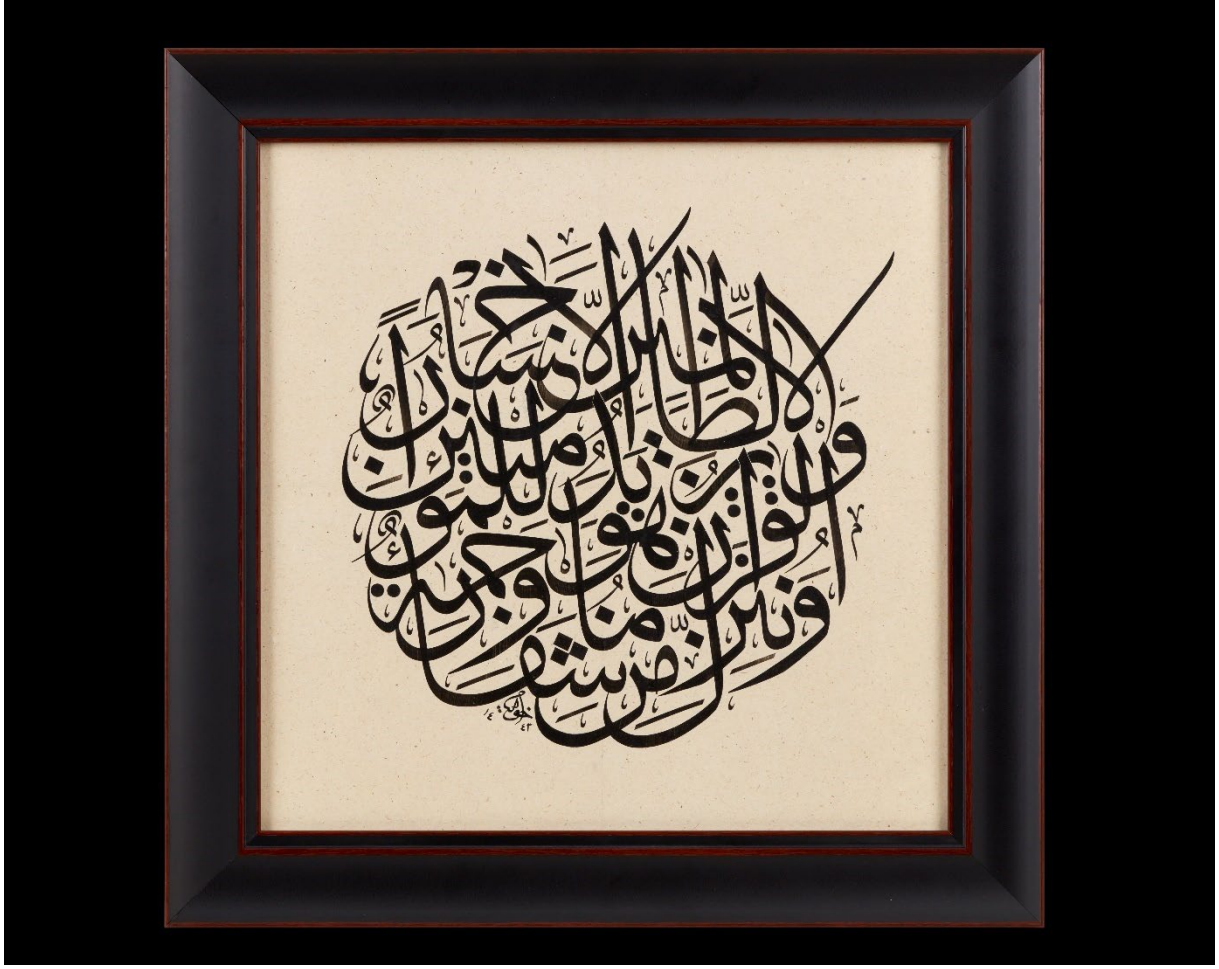 وَنُنَزِّلُ مِنَ الْقُرْآنِ مَا هُوَ شِفَاءٌ وَرَحْمَةٌ لِلْمُؤْمِنِينَ وَلَا يَزِيدُ الظَّالِمِينَ إِلَّا خَسَارًا
١٤٤٢